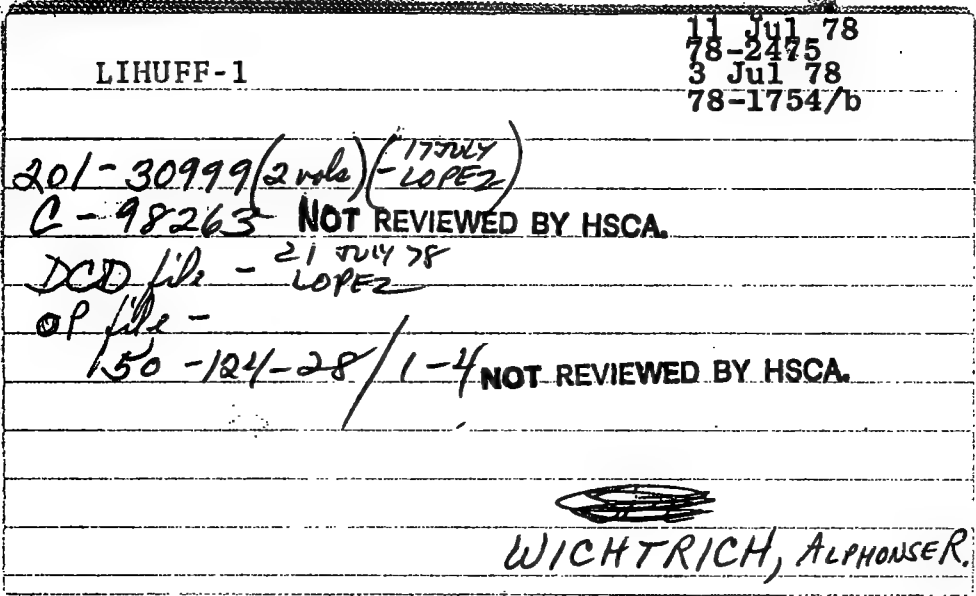 11 Jul 78
78-2475
LIHUFF-1
3 Jul 78
78-1754/b
201-30999 (2 vols) (17 JULY - LOPEZ)
C-98263- NOT REVIEWED BY HSCA.
DCD file - 21 JULY 78 LOPEZ
OP file -
150-124-28/1-4 NOT REVIEWED BY HSCA.
WICHTRICH, ALPHONSE R.